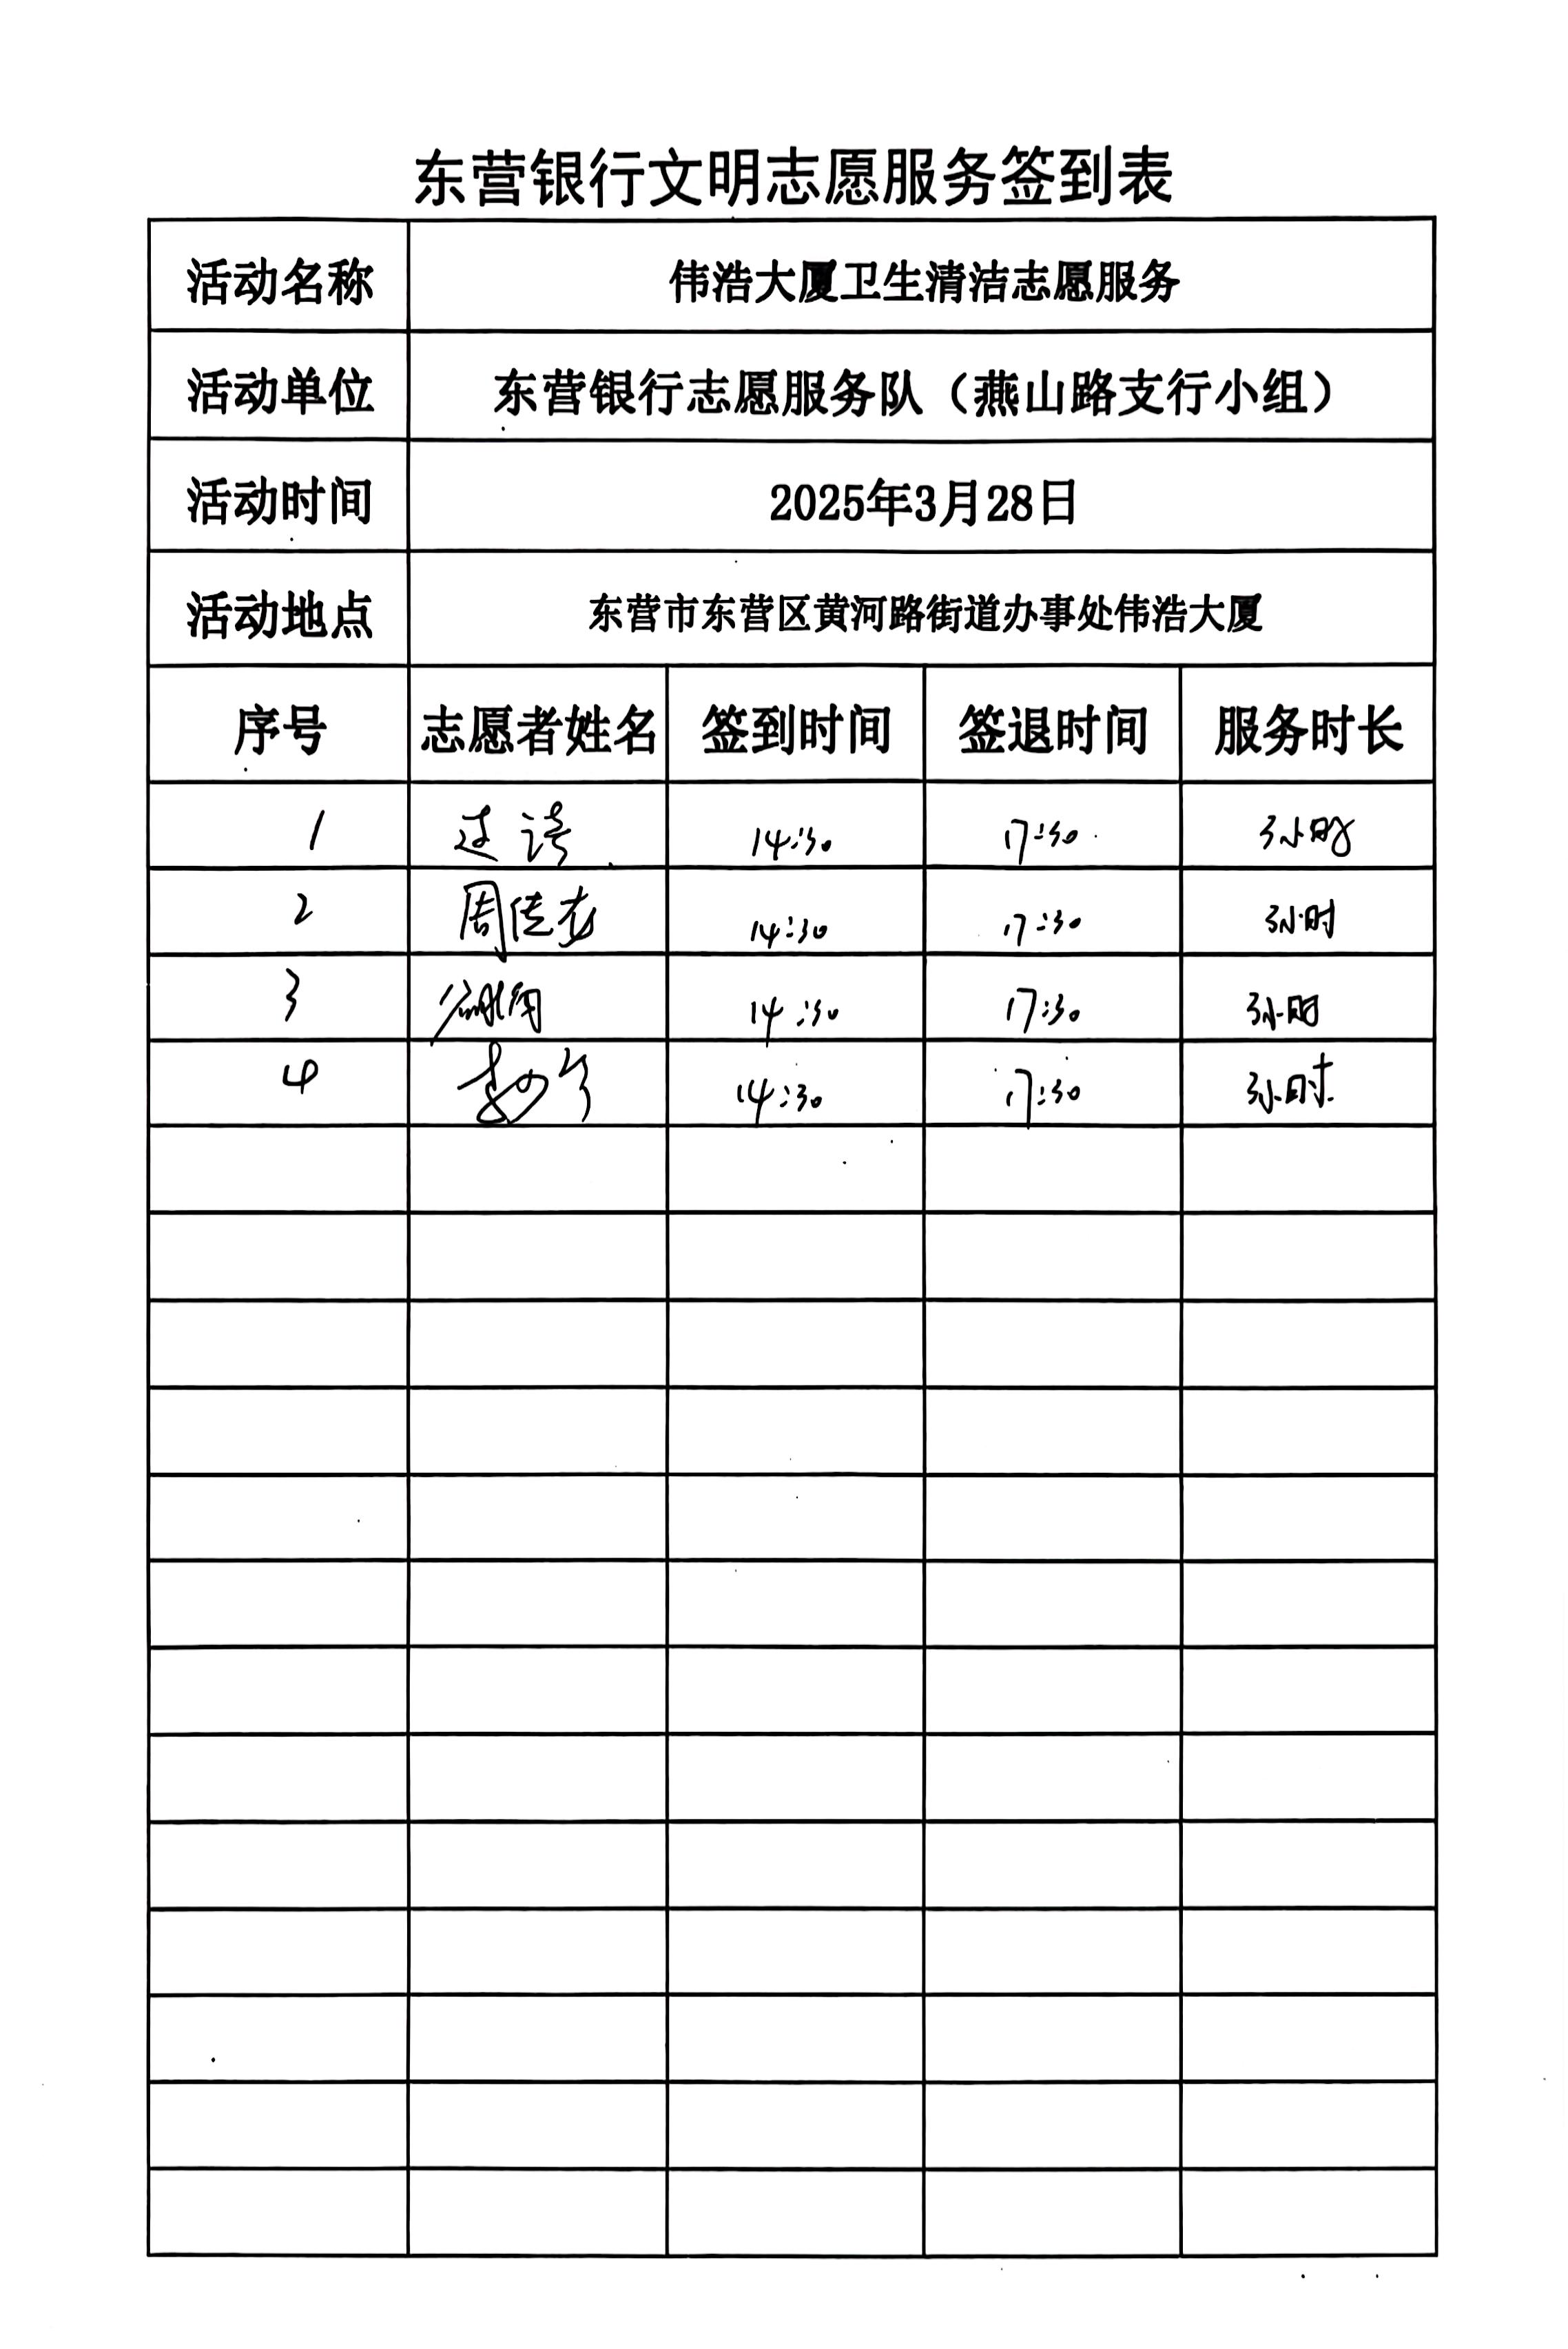 东营银行文明志愿服务签到表
活动名称 伟浩大厦卫生清洁志愿服务
活动单位 东营银行志愿服务队（燕山路支行小组）
活动时间 2025年3月28日
活动地点 东营市东营区黄河路街道办事处伟浩大厦
序号 志愿者姓名 签到时间 签退时间 服务时长
1 14:30 17:30 3小时
2 周 14:30 17:30 3小时
3 14:30 17:30 3小时
4 14:30 17:30 3小时